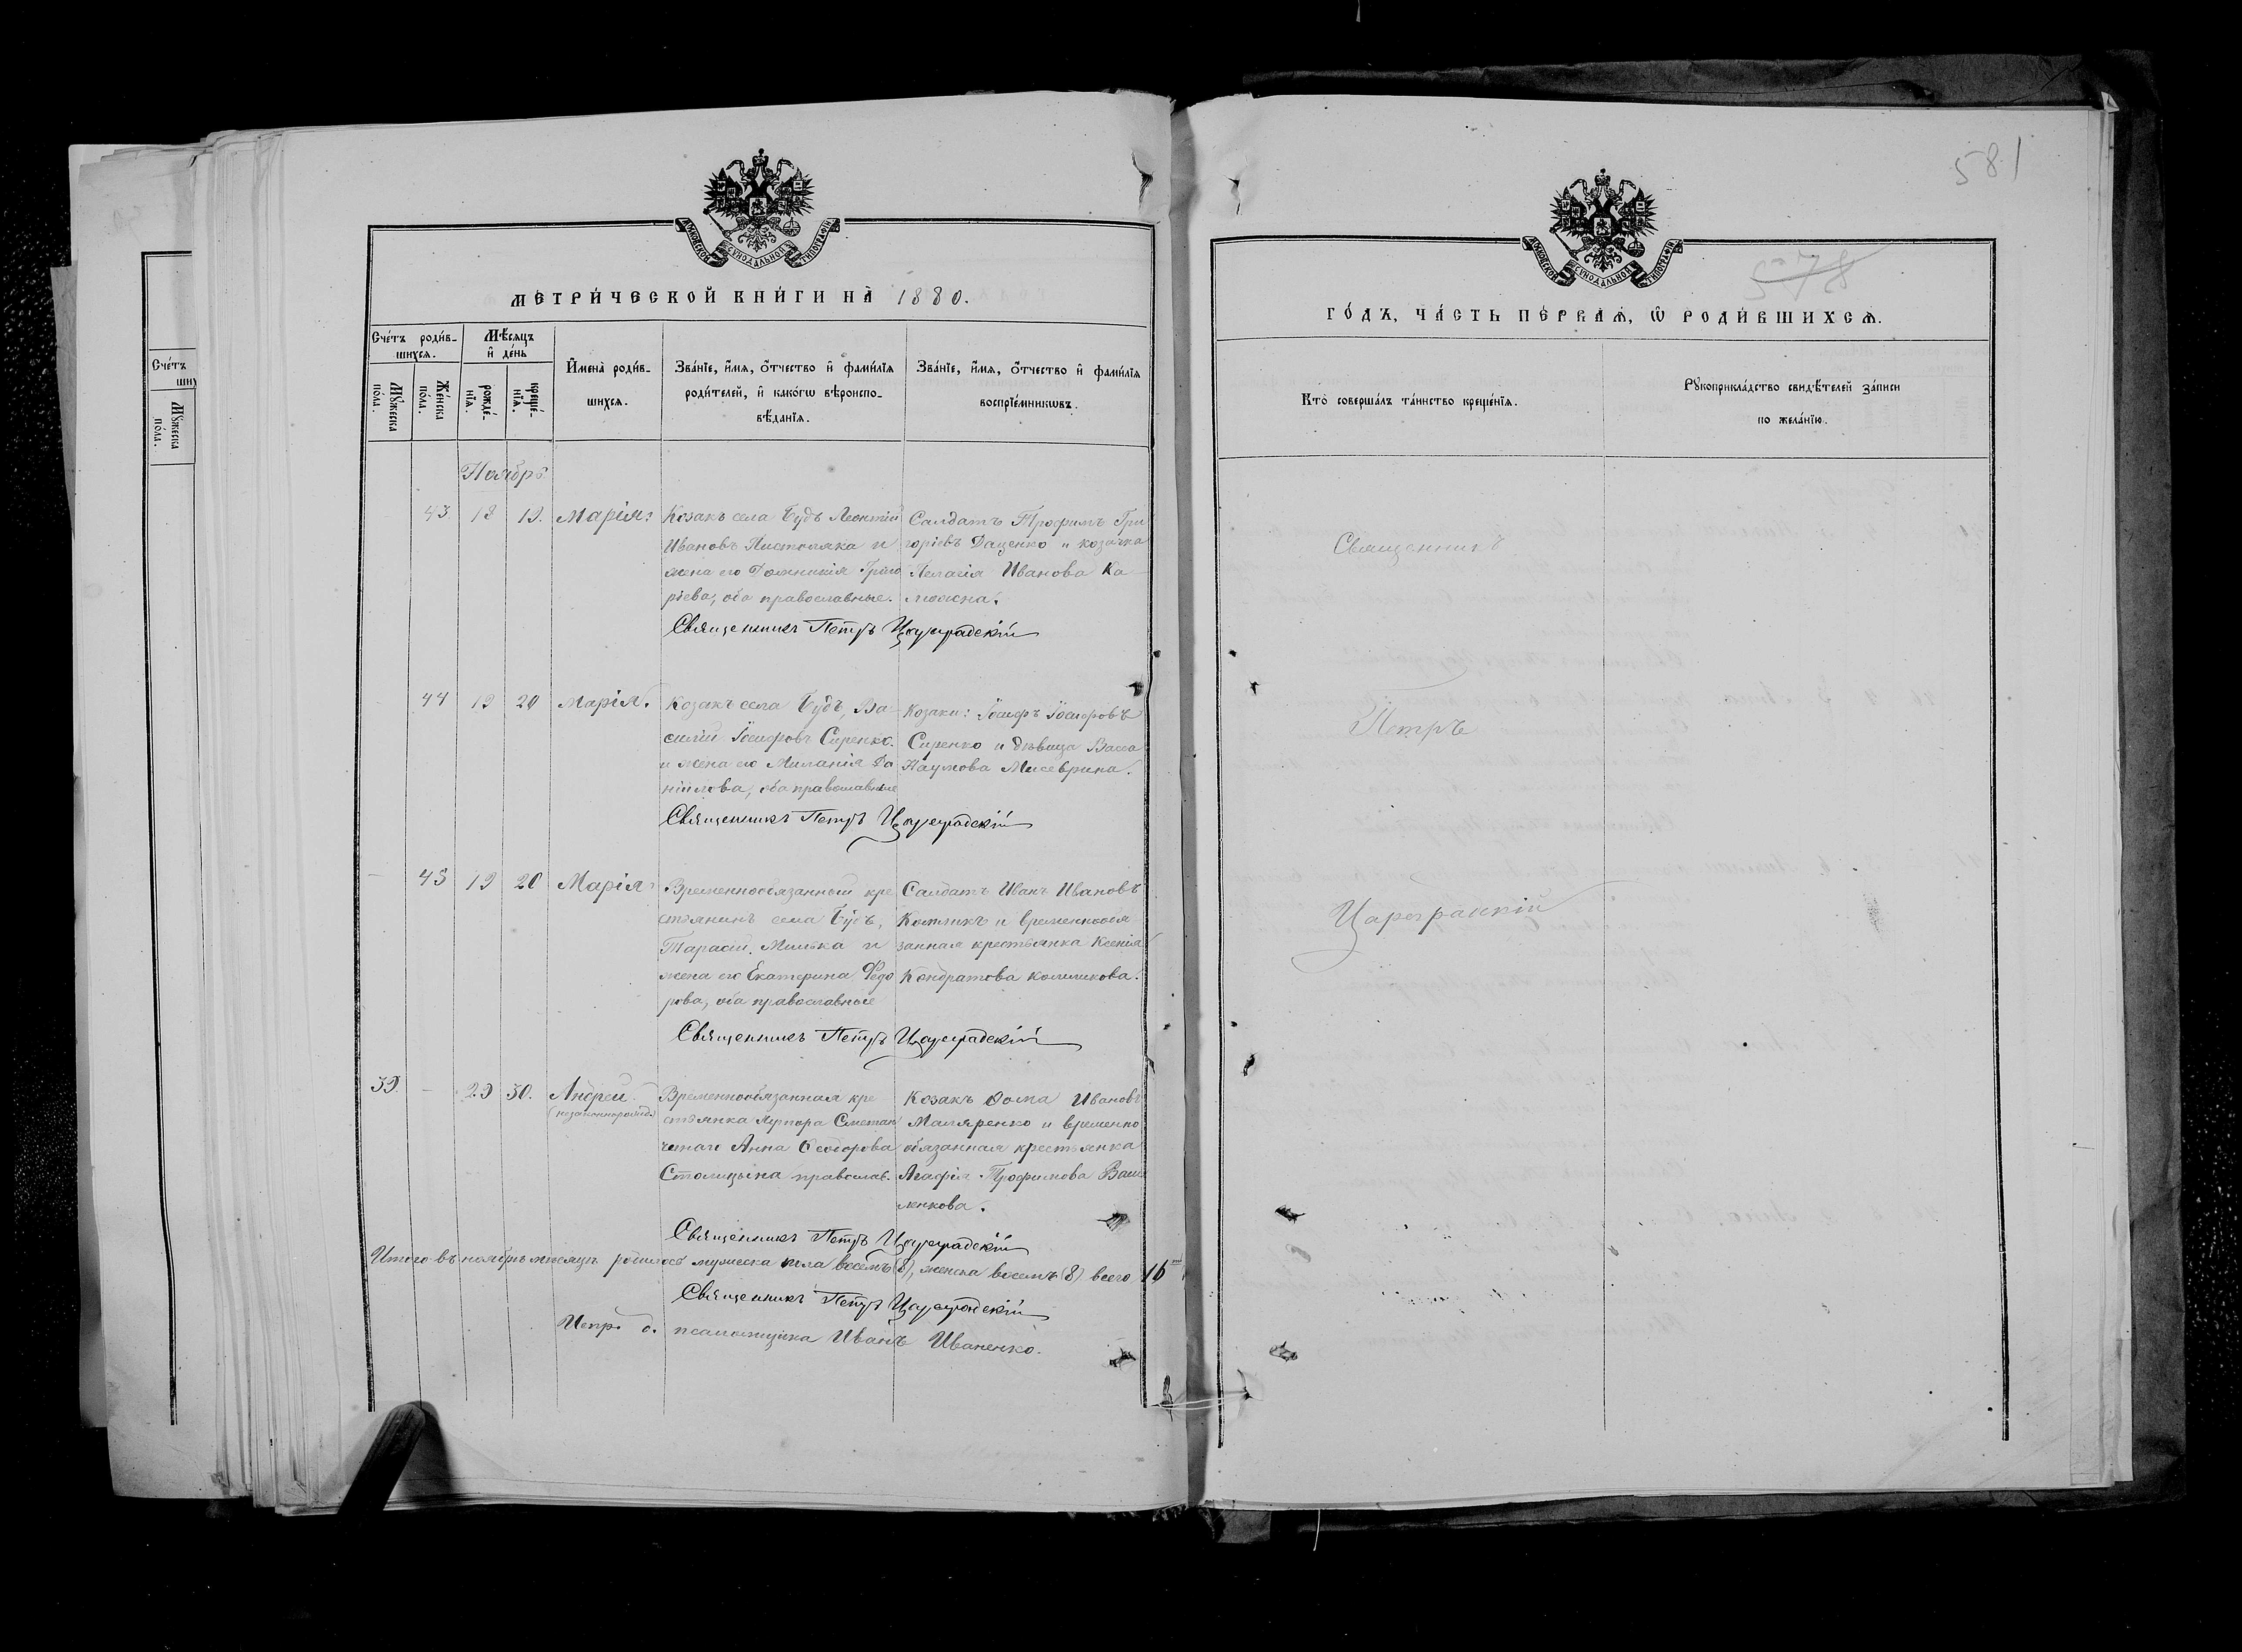 МОСКОВСКОЙ СѴНОДАЛЬНОЙ ТИПОГРАФІИ
МЕТРИ́ЧЕСКОЙ КНИ́ГИ НА̀ 1880.
Сче́тъ роди́в-
шихсѧ.
Мѣ́сѧцъ
и҆ де́нь
Мꙋ́жеска
по́ла.
Же́нска
по́ла.
рожде́-
нїѧ.
креще́-
нїѧ.
И҆мена̀ роди́в-
шихсѧ.
Зва́нїе, и҆́мѧ, ѻ҆́тчество и҆ фами́лїѧ
роди́телей, и҆ како́гѡ вѣроиспо-
вѣ́данїѧ.
Зва́нїе, и҆́мѧ, ѻ҆́тчество и҆ фами́лїѧ
воспрїе́мникѡвъ.
Ноябрь
43. 18 19. Марія.
Козакъ села Будъ Леонтій
Ивановъ Пистоляка и
жена его Домникія Григо
рьева, оба православные.
Салдатъ Трофимъ Гри
горіевъ Даценко и козачка
Пелагія Иванова Ка-
люжна.
Священникъ Петръ Цареградскій
44 19 20 Марія.
Козакъ села Будъ, Ва-
силій Іосифовъ Сиренко.
и жена его Миланія Да
ніилова, оба православные
Козаки: Іосифъ Іосифовъ
Сиренко и дѣвица Васса
Наумова Мисеврина.
Священникъ Петръ Цареградскій
— 45 19 20 Марія
Временнообязанный кре
стьянинъ села Будъ,
Тарасій Милька и
жена его Екатерина Федо
рова, оба православные
Салдатъ Иванъ Ивановъ
Котикъ и временнообя
занная крестьянка Ксенія
Кондратова Коликова.
Священникъ Петръ Цареградскій
39. — 29 30. Андрей.
(незаконнорожд.)
Временнообязанная кре
стьянка хутора Сметан
чатаго Анна Ѳеодорова
Столицына православ.
Козакъ Ѳома Ивановъ
Маляренко и временно
обязанная крестьянка
Агафія Трофимова Ваши
ленкова.
Священникъ Петръ Цареградскій
Итого въ ноябрѣ мѣсяцѣ родилось мужеска пола восемъ (8), женска восемъ (8) всего 16
Священникъ Петръ Цареградскій
Испр. д. псаломщика Иванъ Иваненко.
Сче́тъ
ших
Мꙋ́жеска
по́ла.
581
578
МОСКОВСКОЙ СѴНОДАЛЬНОЙ ТИПОГРАФІИ
ГО́ДЪ, ЧА́СТЬ ПЕ́РВАѦ, Ѡ҆ РОДИ́ВШИХСѦ.
Кто̀ соверша́лъ та́инство креще́нїѧ.
Рꙋкоприкла́дство свидѣ́телей за́писи
по жела́нїю.
Священникъ
Петръ
Цареградскій